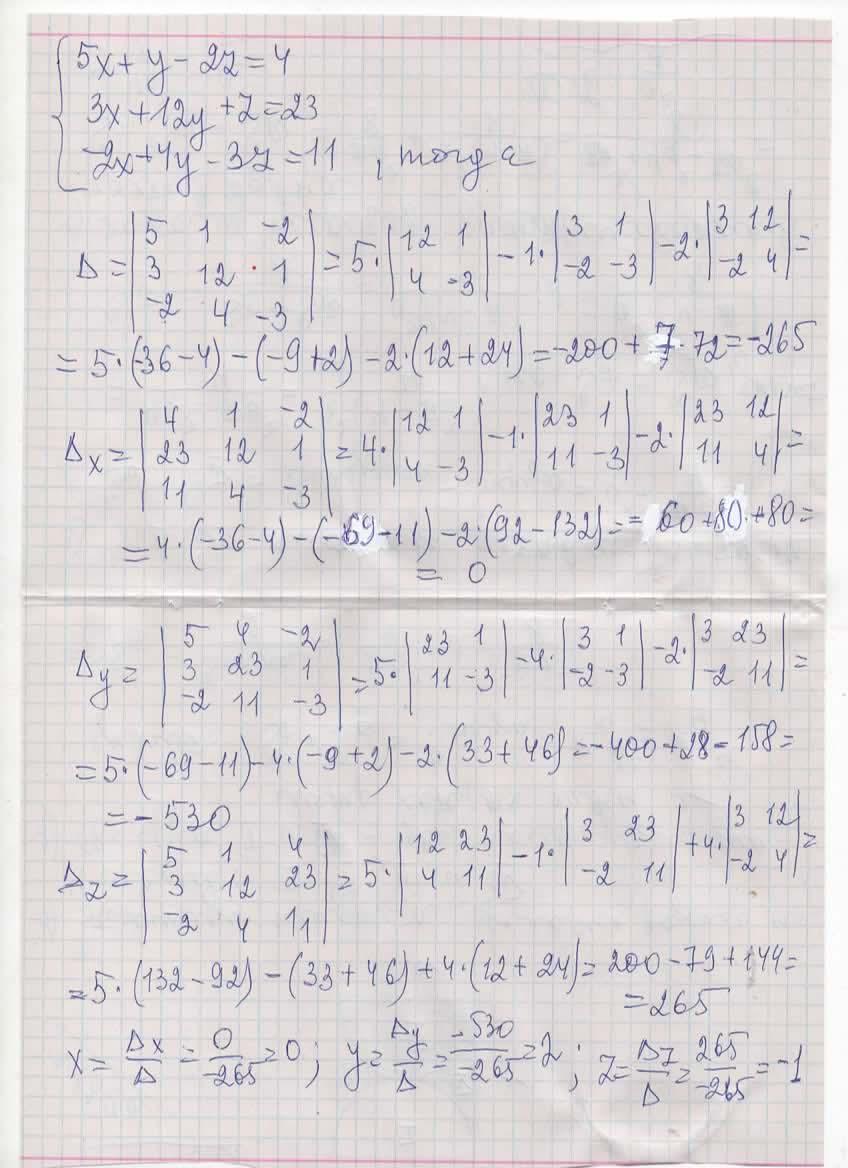 5x+y-2z=4
3x+12y+z=23
-2x+4y-3z=11 , тогда
Δ = |5 1 -2; 3 12 · 1; -2 4 -3| = 5·|12 1; 4 -3| - 1·|3 1; -2 -3| - 2·|3 12; -2 4| =
= 5·(-36-4) - (-9+2) - 2·(12+24) = -200 + 7 · 72 = -265
Δx = |4 1 -2; 23 12 1; 11 4 -3| = 4·|12 1; 4 -3| - 1·|23 1; 11 -3| - 2·|23 12; 11 4| =
= 4·(-36-4) - (-69-11) - 2·(92-132) = = 60+80·+80 =
= 0
Δy = |5 4 -2; 3 23 1; -2 11 -3| = 5·|23 1; 11 -3| - 4·|3 1; -2 -3| - 2·|3 23; -2 11| =
= 5·(-69-11) - 4·(-9+2) - 2·(33+46) = -400+28-158 =
= -530
Δz = |5 1 4; 3 12 23; -2 4 11| = 5·|12 23; 4 11| - 1·|3 23; -2 11| + 4·|3 12; -2 4| =
= 5·(132-92) - (33+46) + 4·(12+24) = 200-79+144 =
= 265
x = Δx/Δ = 0/-265 = 0 ; y = Δy/Δ = -530/-265 = 2 ; z = Δz/Δ = 265/-265 = -1